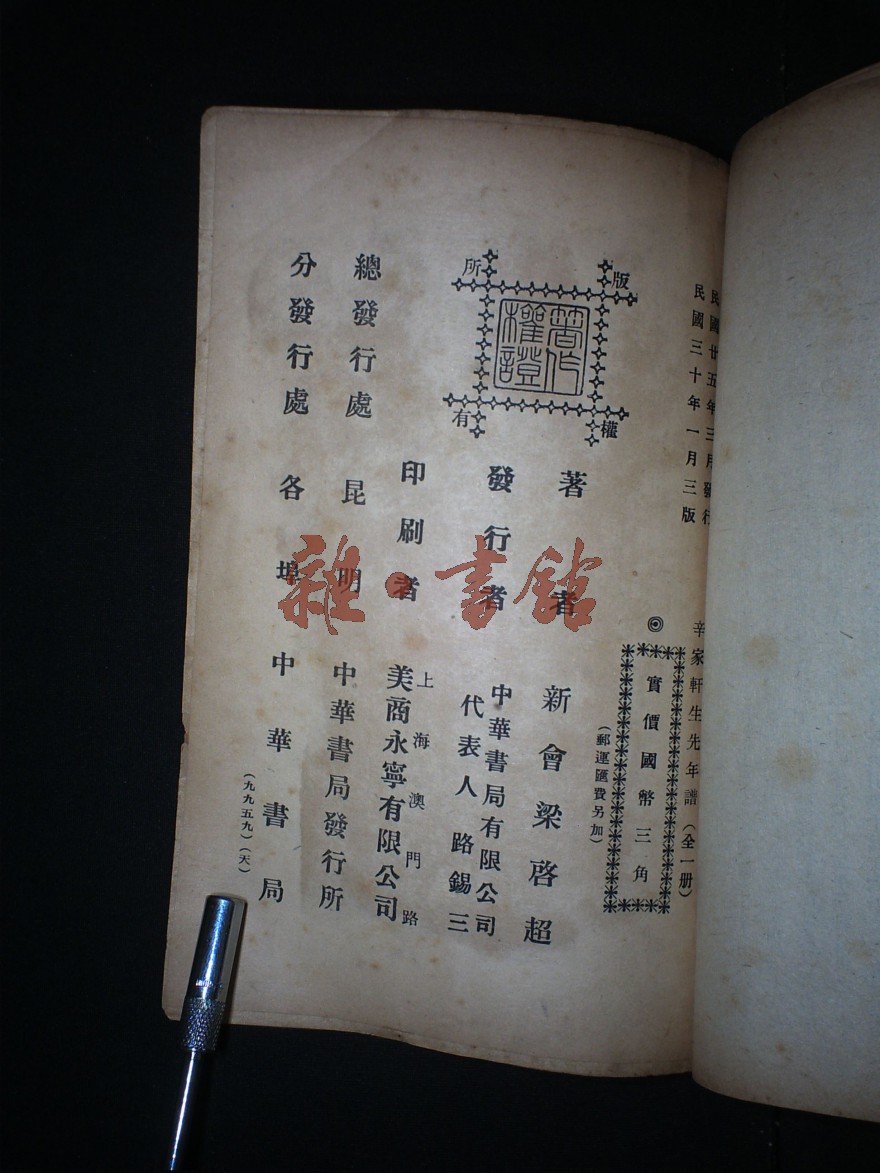 民國廿五年三月發行
民國三十年一月三版
辛家軒生先年譜(全一冊)
◎
實價國幣三角
(郵運匯費另加)
版權所有
著作權證
著者 新會梁啓超
發行者 中華書局有限公司
代表人 路錫三
印刷者 上海澳門路
美商永寧有限公司
總發行處 昆明 中華書局發行所
分發行處 各埠 中華書局
(九九五九)(天)
雜·書館